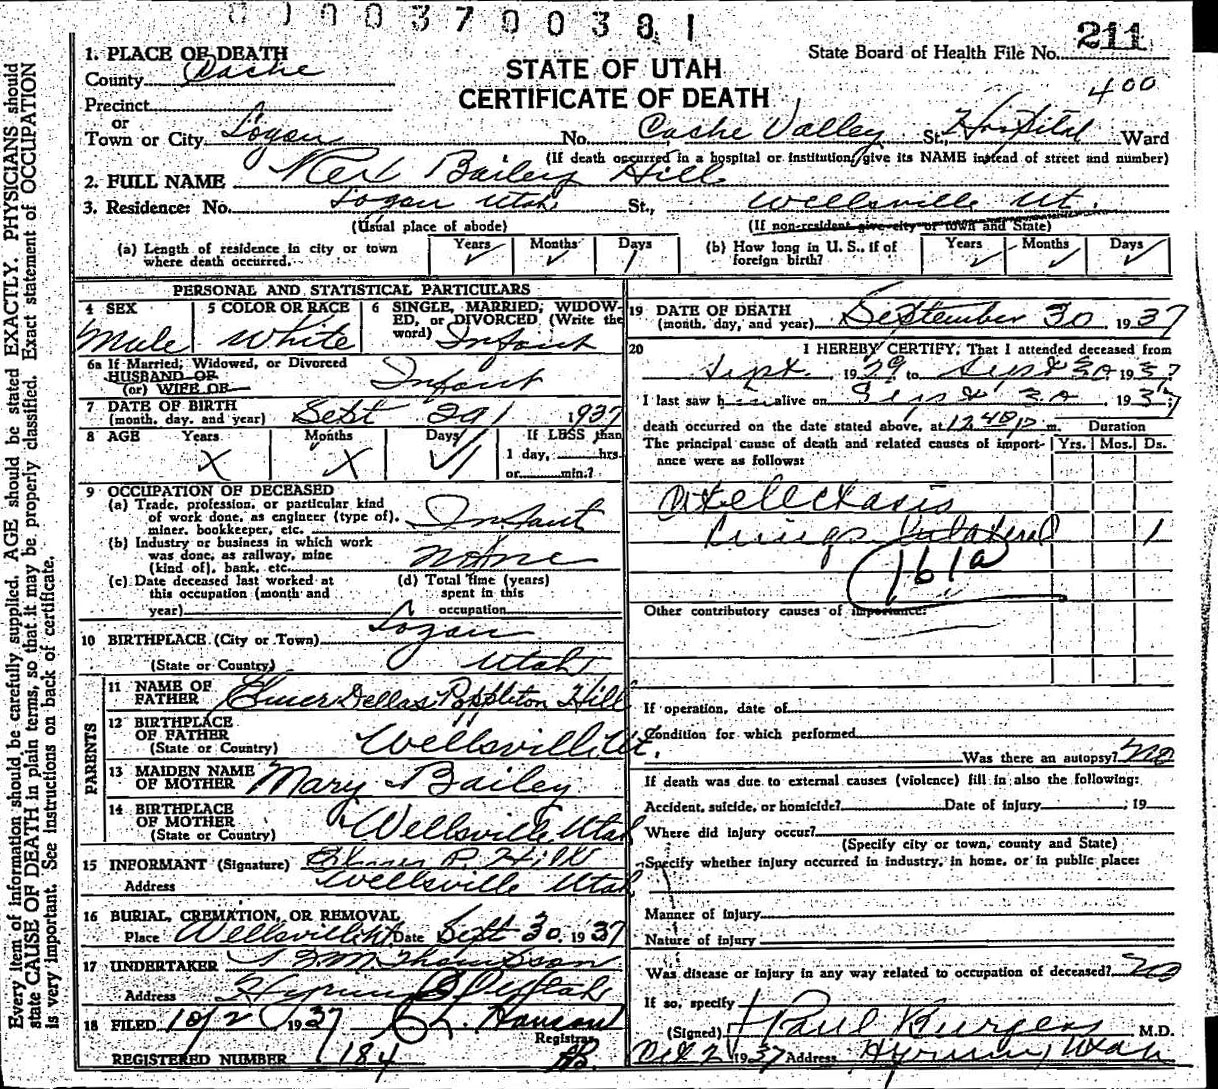 0 0 0 0 3 7 0 0 3 8 1
211
State Board of Health File No.
400
STATE OF UTAH
CERTIFICATE OF DEATH
1. PLACE OF DEATH
County Cache
Precinct
or
Town or City Logan No. Cache Valley St., Hospital Ward
(If death occurred in a hospital or institution, give its NAME instead of street and number)
2. FULL NAME Rex Bailey Hill
3. Residence: No. Logan Utah St., Wellsville Ut.
(Usual place of abode) (If non-resident give city or town and State)
(a) Length of residence in city or town where death occurred. Years ✓ Months ✓ Days 1
(b) How long in U. S., if of foreign birth? Years ✓ Months ✓ Days ✓
PERSONAL AND STATISTICAL PARTICULARS
4 SEX Male
5 COLOR OR RACE White
6 SINGLE, MARRIED, WIDOWED, or DIVORCED (Write the word) Infant
6a If Married, Widowed, or Divorced
HUSBAND OF
(or) WIFE OF Infant
7 DATE OF BIRTH
(month, day, and year) Sept 29 1937
8 AGE Years X Months X Days 1 If LESS than
1 day, hrs.
or min.?
9 OCCUPATION OF DECEASED
(a) Trade, profession, or particular kind
of work done, as engineer (type of),
miner, bookkeeper, etc. Infant
(b) Industry or business in which work
was done, as railway, mine
(kind of), bank, etc. None
(c) Date deceased last worked at
this occupation (month and
year)
(d) Total time (years)
spent in this
occupation
10 BIRTHPLACE (City or Town) Logan
(State or Country) Utah
PARENTS
11 NAME OF
FATHER Elmer Dellas Poppleton Hill
12 BIRTHPLACE
OF FATHER
(State or Country) Wellsville Ut.
13 MAIDEN NAME
OF MOTHER Mary Bailey
14 BIRTHPLACE
OF MOTHER
(State or Country) Wellsville Utah
15 INFORMANT (Signature) Elmer P. Hill
Address Wellsville Utah
16 BURIAL, CREMATION, OR REMOVAL
Place Wellsville Ut Date Sept 30 1937
17 UNDERTAKER Thompson
Address Hyrum Utah
18 FILED 10/2 1937 Hanson
Registrar
REGISTERED NUMBER 184
19 DATE OF DEATH
(month, day, and year) September 30 1937
20 I HEREBY CERTIFY, That I attended deceased from
Sept 1929 to Sept 30 1937
I last saw h alive on Sept 30, 1937
death occurred on the date stated above, at 12 48 p m. Duration
The principal cause of death and related causes of importance were as follows: Yrs. Mos. Ds.
Atelectasis
Lungs bilateral 1
161a
Other contributory causes of importance:
If operation, date of
Condition for which performed
Was there an autopsy? no
If death was due to external causes (violence) fill in also the following:
Accident, suicide, or homicide? Date of injury , 19
Where did injury occur?
(Specify city or town, county and State)
Specify whether injury occurred in industry, in home, or in public place:
Manner of injury
Nature of injury
Was disease or injury in any way related to occupation of deceased? no
If so, specify
(Signed) Paul Burgess M.D.
Oct 2 1937 Address Hyrum, Utah
Every item of information should be carefully supplied. AGE should be stated EXACTLY. PHYSICIANS should
state CAUSE OF DEATH in plain terms, so that it may be properly classified. Exact statement of OCCUPATION
is very important. See instructions on back of certificate.